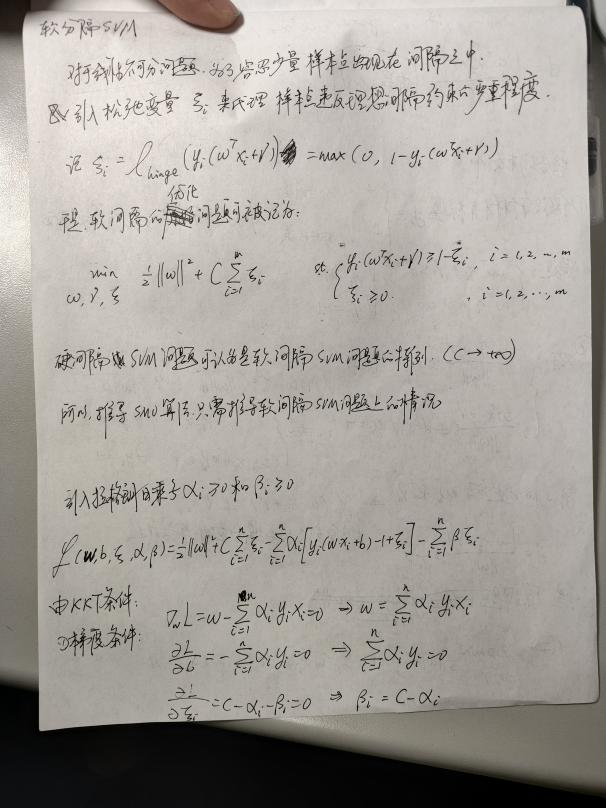 软分隔SVM
对于线性不可分问题,为了容忍少量样本点出现在间隔之中.
引入松弛变量 ξi 来代理样本点违反理想间隔约束的严重程度.
记 ξi = ℓhinge (yi(ωᵀxi+γ)) = max(0, 1-yi(ωᵀxi+γ))
于是,软间隔的优化问题可被记为:
min ω,γ,ξ ½||ω||² + C Σ_{i=1}^{m} ξi s.t. { yi(ωᵀxi+γ) ≥ 1-ξi, i=1,2,…,m
ξi ≥ 0. , i=1,2,…,m
硬间隔SVM问题可认为是软间隔SVM问题的特例.(C→+∞)
所以,推导SMO算法,只需推导软间隔SVM问题上的情况
引入拉格朗日乘子 αi≥0 和 βi≥0
ℒ(w,b,ξ,α,β)=½||ω||²+C Σ_{i=1}^{n} ξi - Σ_{i=1}^{n} αi[yi(ωxi+b)-1+ξi] - Σ_{i=1}^{n} βξi
由KKT条件:
①梯度条件: ∇wL = w - Σ_{i=1}^{n} αiyixi=0 ⇒ w = Σ_{i=1}^{n} αiyixi
∂L/∂b = - Σ_{i=1}^{n} αiyi=0 ⇒ Σ_{i=1}^{n} αiyi=0
∂L/∂ξi = C-αi-βi=0 ⇒ βi = C-αi